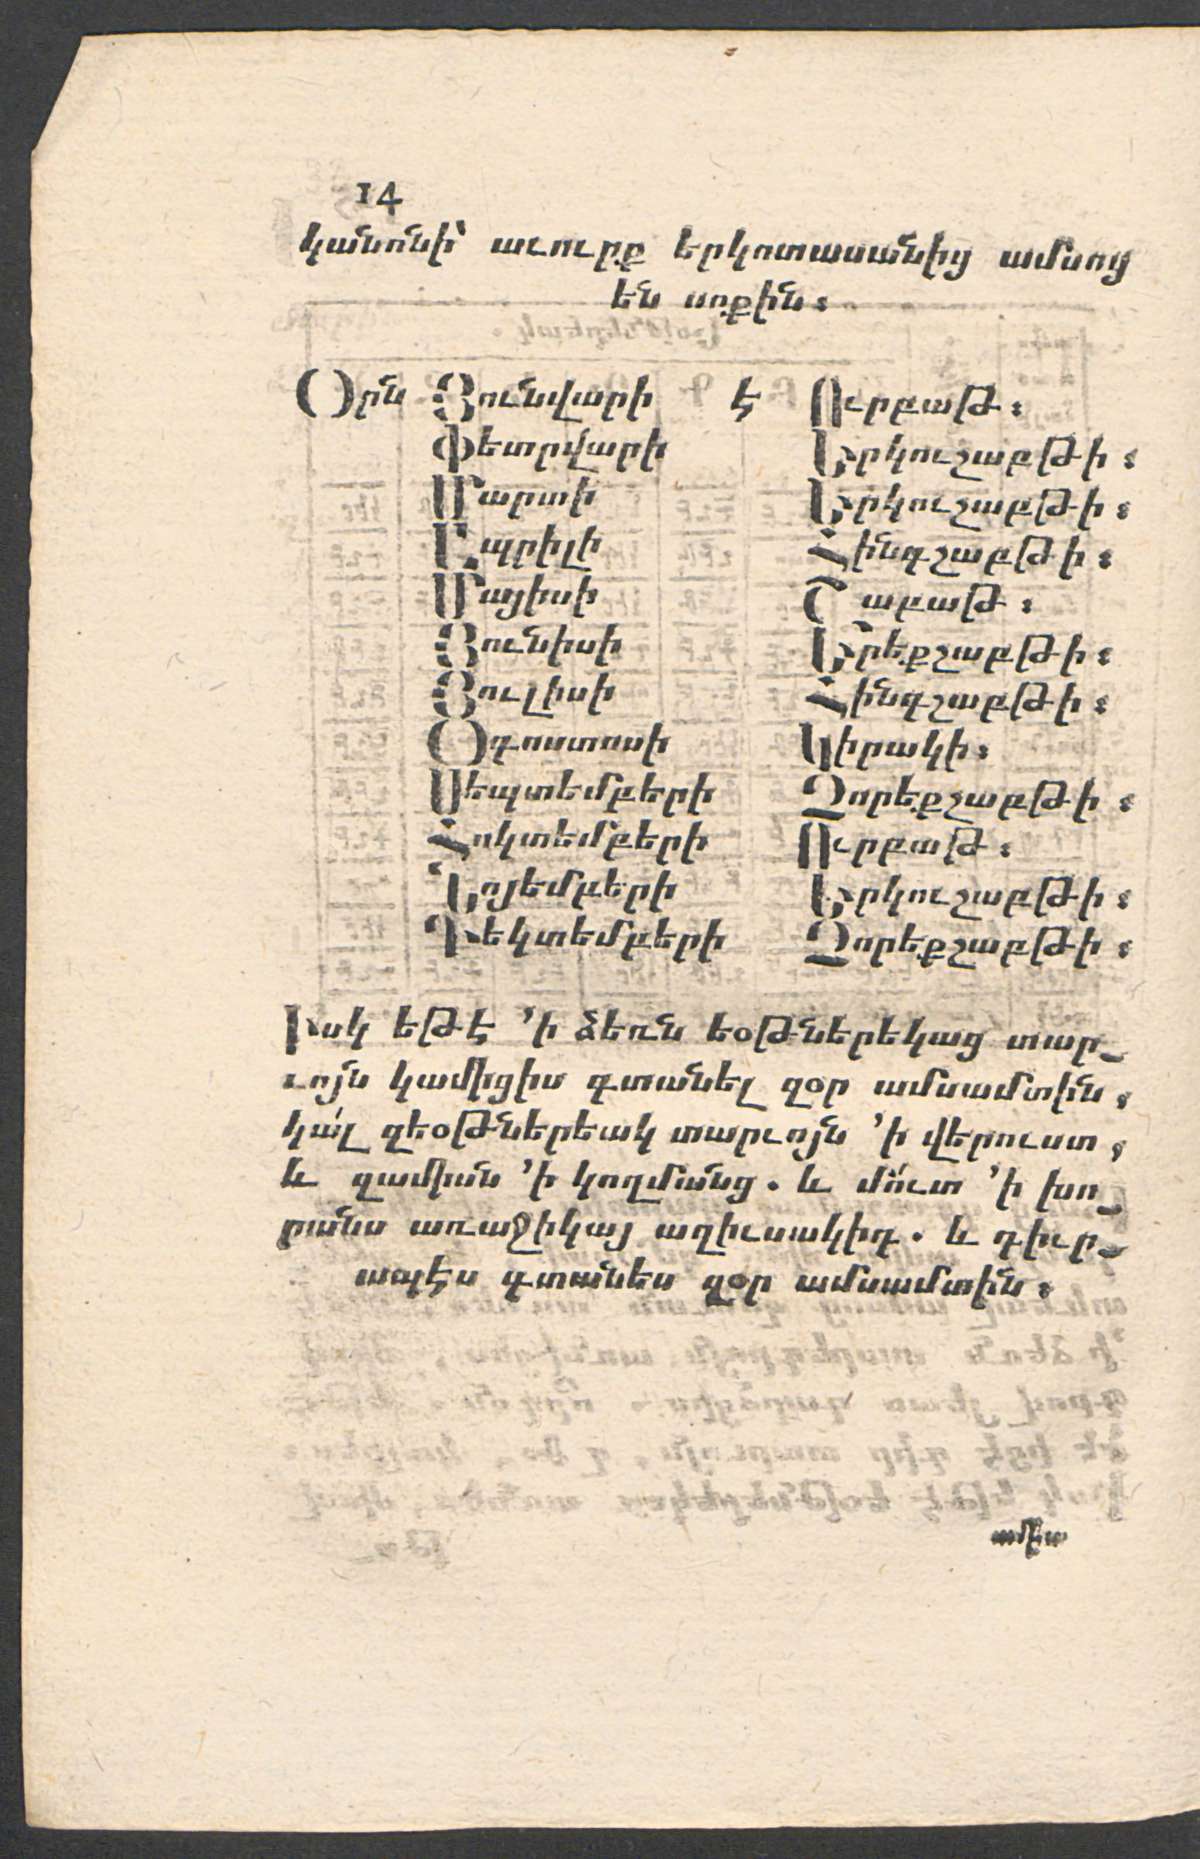 14
կանոնի՝ աւուրք երկոտասանից ամսոց
են սոքին։
Օրն Յունվարի է Ուրբաթ։
Փետրվարի Երկուշաբթի։
Մարտի Երկուշաբթի։
Ապրիլի Հինգշաբթի։
Մայիսի Շաբաթ։
Յունիսի Երեքշաբթի։
Յուլիսի Հինգշաբթի։
Օգոստոսի Կիրակի։
Սեպտեմբերի Չորեքշաբթի։
Հոկտեմբերի Ուրբաթ։
Նոյեմբերի Երկուշաբթի։
Դեկտեմբերի Չորեքշաբթի։
Իսկ եթէ ՚ի ձեռն եօթներեկաց տար-
ւոյն կամիցիս գտանել զօր ամսամտին,
կա՛լ զեօթներեակ տարւոյն ՚ի վերուստ,
և զամիսն ՚ի կողմանց. և մո՛ւտ ՚ի խո-
րանս առաջիկայ աղիւսակիդ. և դիւր-
ապէս գտանես զօր ամսամտին։